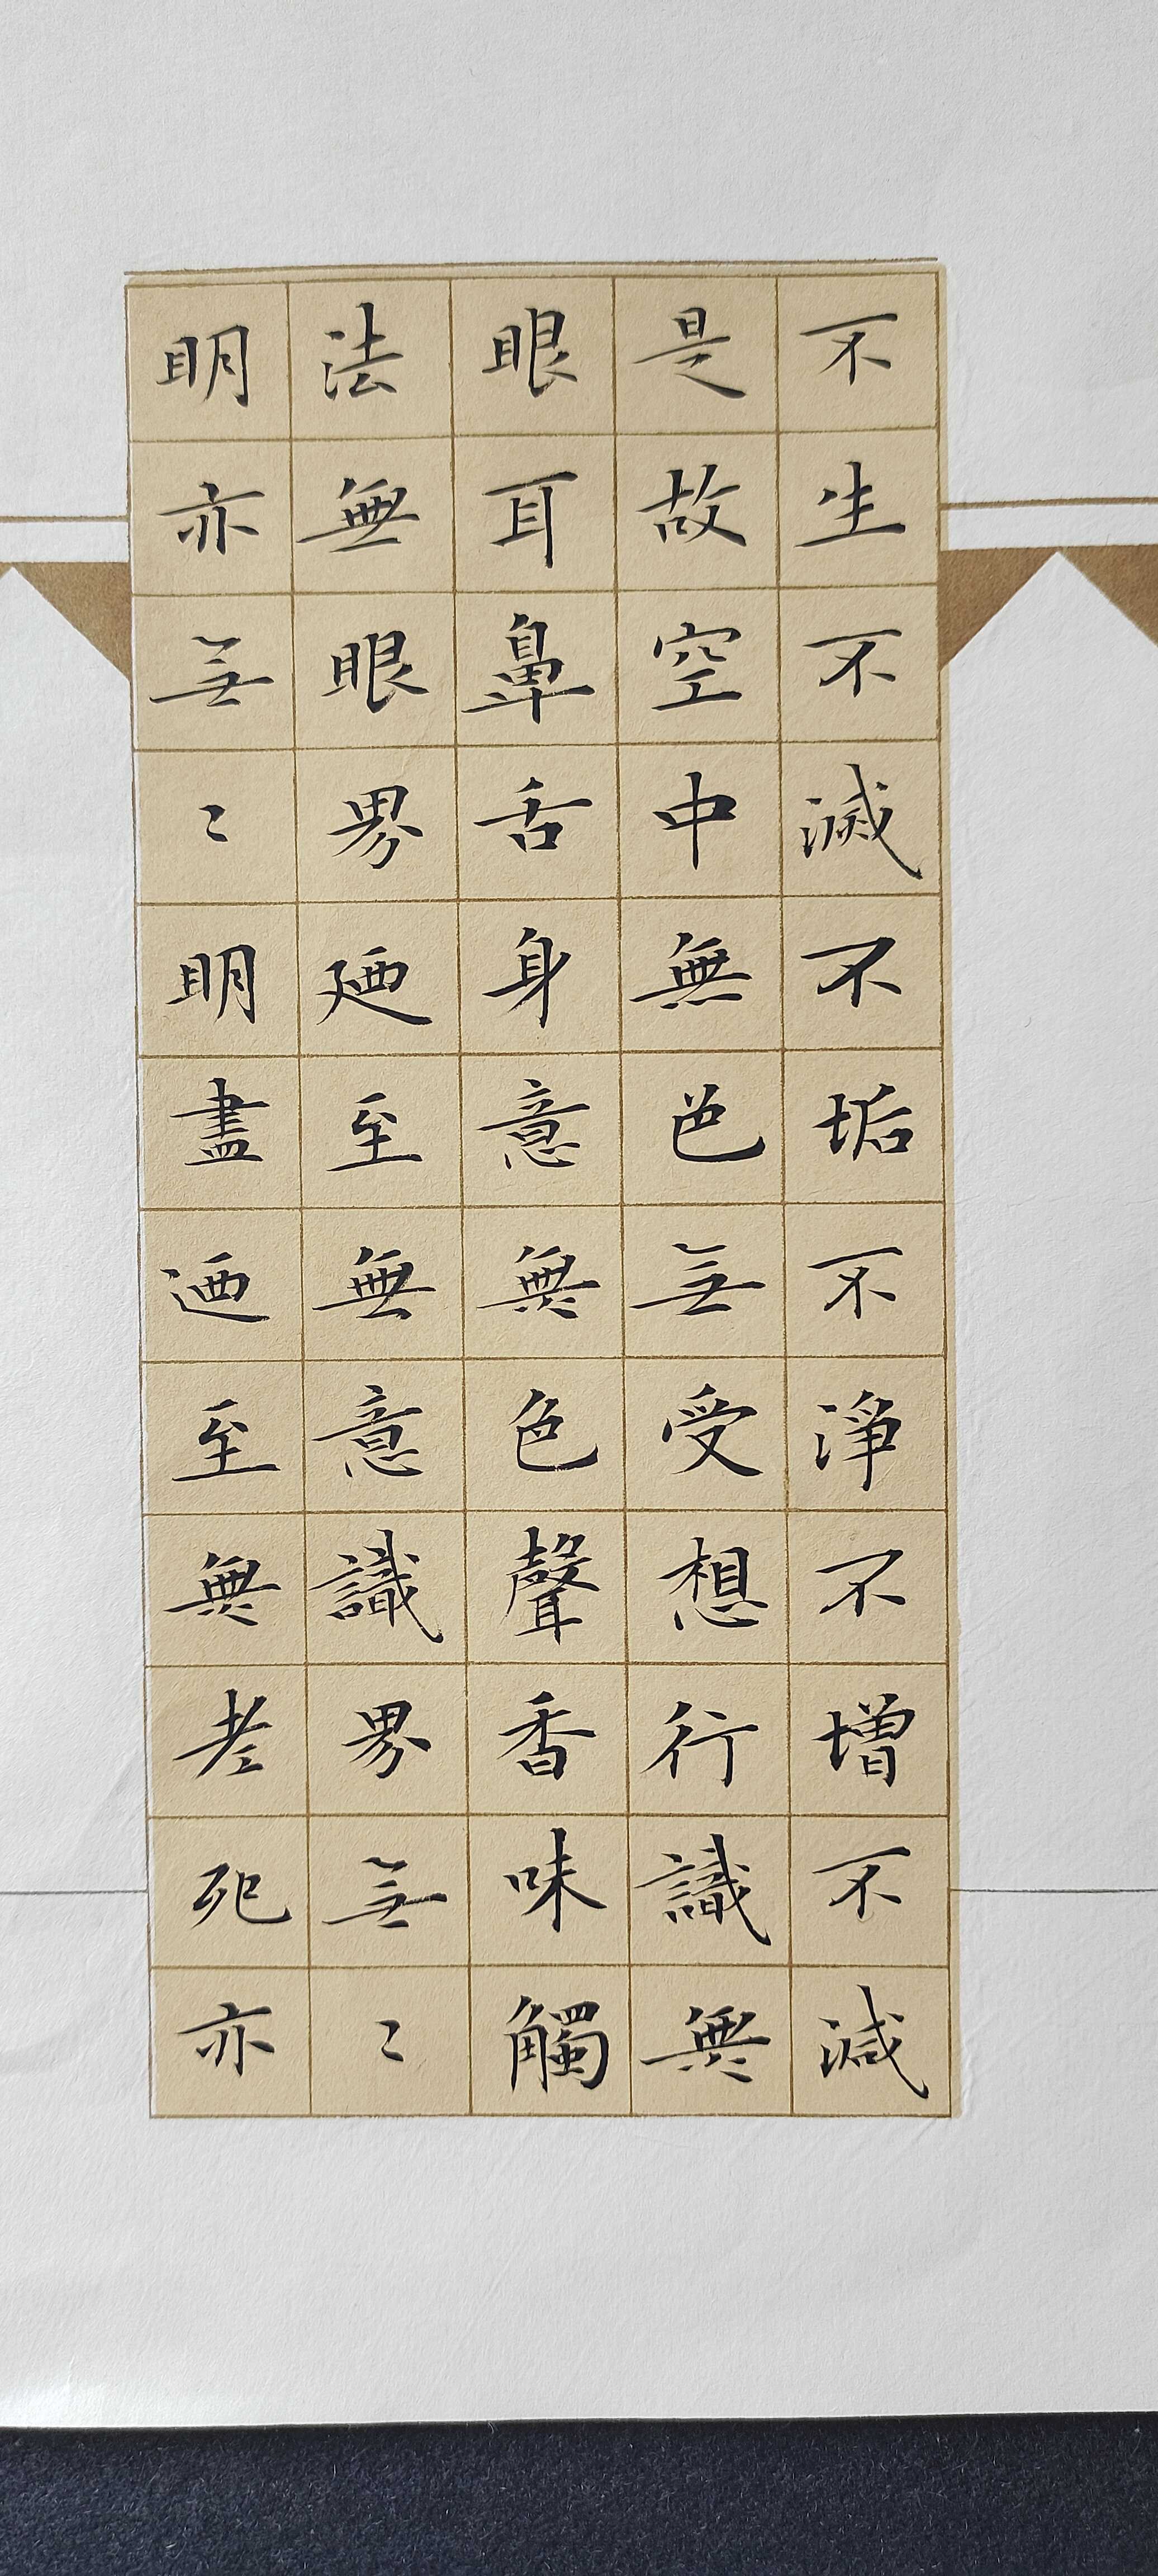 不生不滅不垢不淨不增不減
是故空中無色無受想行識無
眼耳鼻舌身意無色聲香味觸
法無眼界廼至無意識界無〻
明亦無〻明盡迺至無老死亦